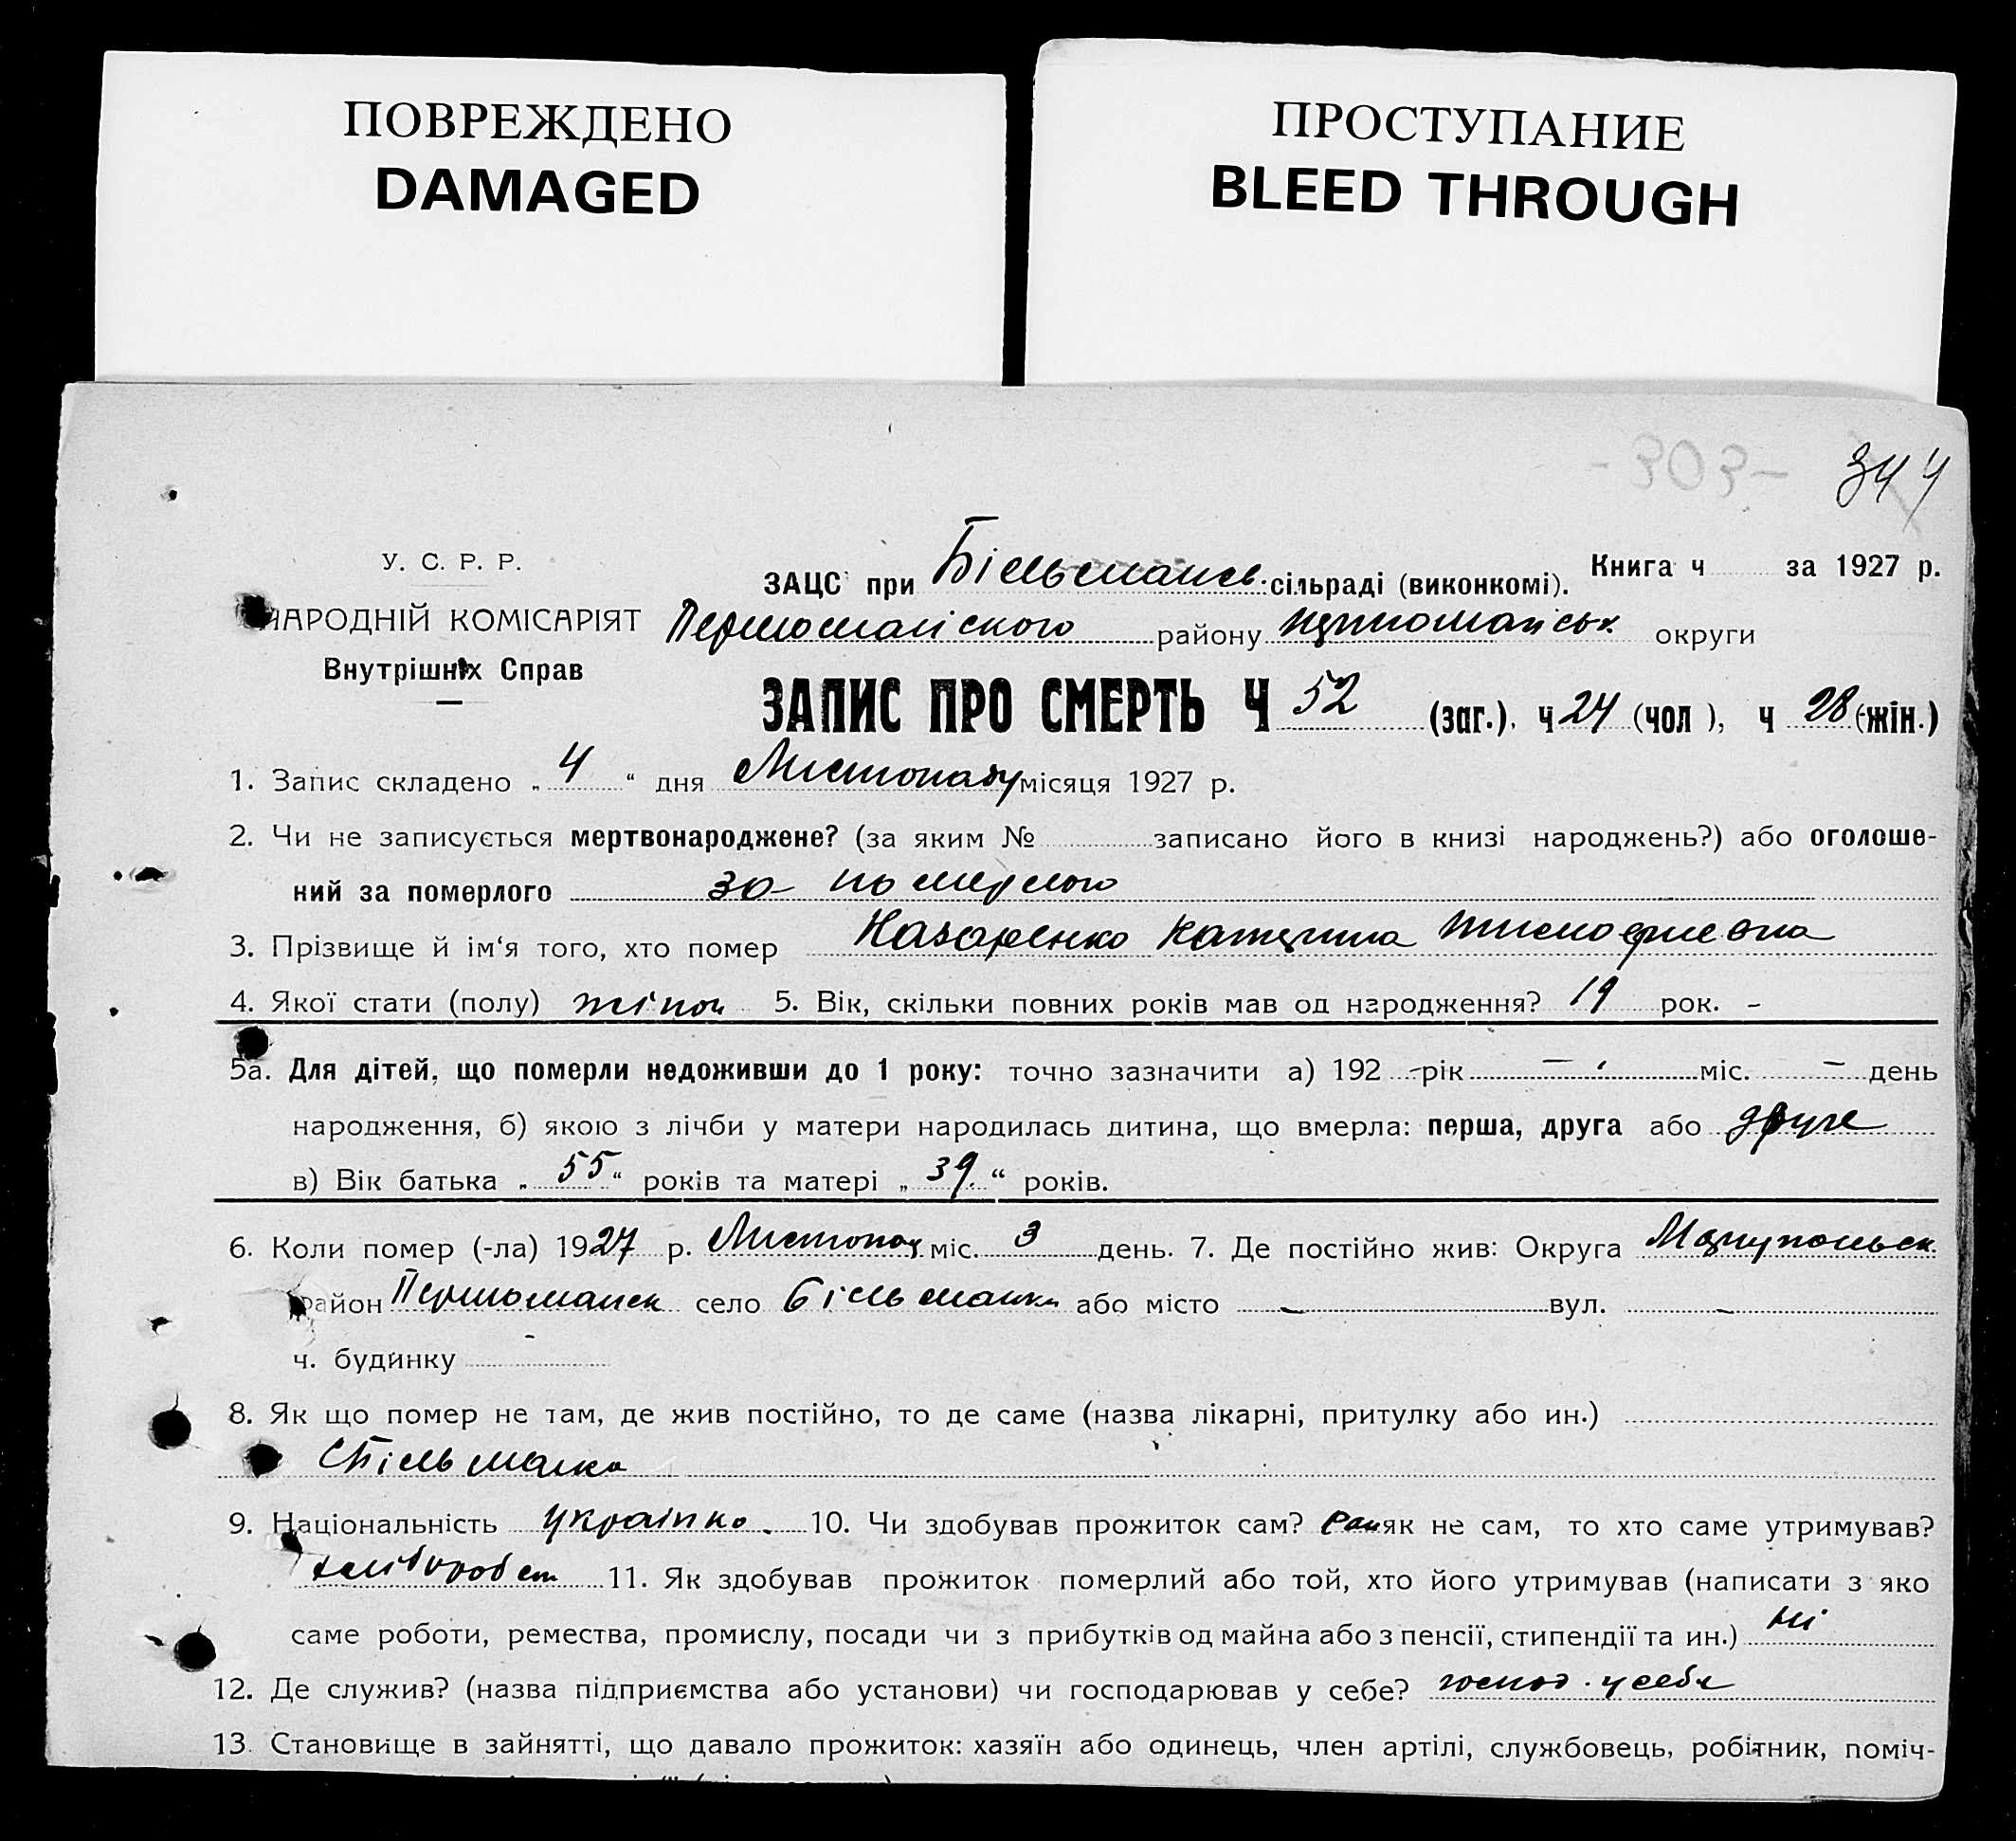 ПОВРЕЖДЕНО
DAMAGED
ПРОСТУПАНИЕ
BLEED THROUGH
-303- 344
У. С. Р. Р.
НАРОДНІЙ КОМІСАРІЯТ
Внутрішніх Справ
ЗАЦС при Більманськ. сільраді (виконкомі). Книга ч за 1927 р.
Першомайского району округи
ЗАПИС ПРО СМЕРТЬ Ч 52 (заг.), ч 24 (чол ), ч 28 (жін.)
1. Запис складено „ 4 “ дня Листопаду місяця 1927 р.
2. Чи не записується мертвонароджене? (за яким № записано його в книзі народжень?) або оголоше-
ний за померлого за померлого
3. Прізвище й ім‘я того, хто помер Назаренко Катерина Тимофиевна
4. Якої стати (полу) жіноч 5. Вік, скільки повних років мав од народження? 19 рок. -
5а. Для дітей, що померли недоживши до 1 року: точно зазначити а) 192 - рік — міс. — день
народження, б) якою з лічби у матери народилась дитина, що вмерла: перша, друга або друге
в) Вік батька „ 55 “ років та матері „ 39 “ років.
6. Коли помер (-ла) 1927 р. Листопад міс. 3 день. 7. Де постійно жив: Округа Маріупольськ.
район Першомайск село Більманки або місто — вул. —
ч. будинку
8. Як що помер не там, де жив постійно, то де саме (назва лікарні, притулку або ин.)
Більманка
9. Національність українка. 10. Чи здобував прожиток сам? сам як не сам, то хто саме утримував?
хлібороб 11. Як здобував прожиток померлий або той, хто його утримував (написати з яко
саме роботи, ремества, промислу, посади чи з прибутків од майна або з пенсії, стипендії та ин.) Ні
12. Де служив? (назва підприємства або установи) чи господарював у себе? господ. у себе
13. Становище в зайнятті, що давало прожиток: хазяїн або одинець, член артілі, службовець, робітник, поміч-